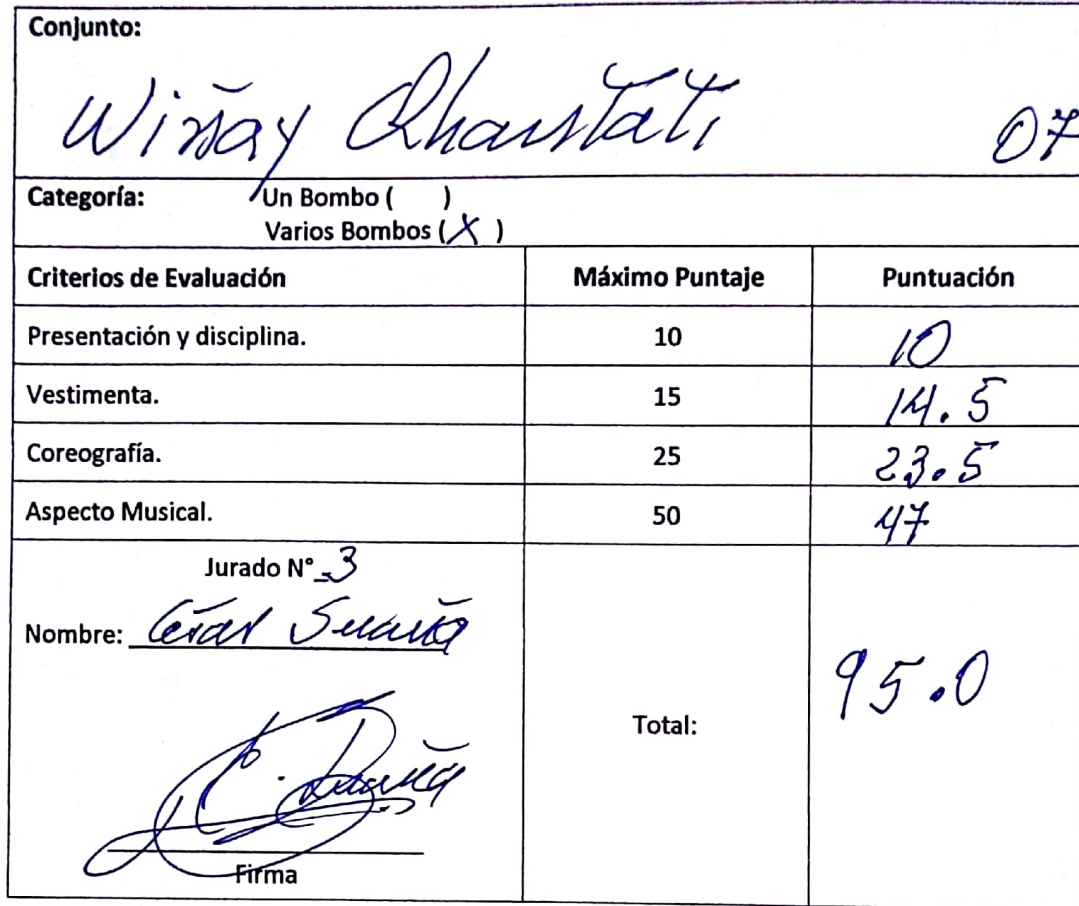 Conjunto:
Wiñay Qhantati 07
Categoría: Un Bombo ( )
Varios Bombos (X)
Criterios de Evaluación Máximo Puntaje Puntuación
Presentación y disciplina. 10 10
Vestimenta. 15 14.5
Coreografía. 25 23.5
Aspecto Musical. 50 47
Jurado N° 3
Nombre: César Suaña
Total: 95.0
Firma